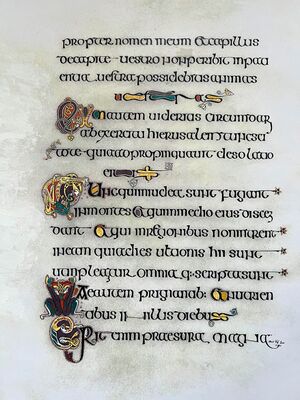 propter nomen meum Et capillus
decapite uestro non peribit inpati
entia uestra possidebitis animas
Cum autem uideritis circumdari
abexercitu hierusalem tunc sci
tote quia adpropinquauit desolatio
eius
Tunc qui in iudea sunt fugiant
in montes & qui in medio eius disced
ant & qui in regionibus non intrent
in eam quia dies ultionis hii sunt
ut impleatur omnia q: scripta sunt
Uae autem prignantib: & nutrien
tibus in illis diebus
Erit enim praesura magna